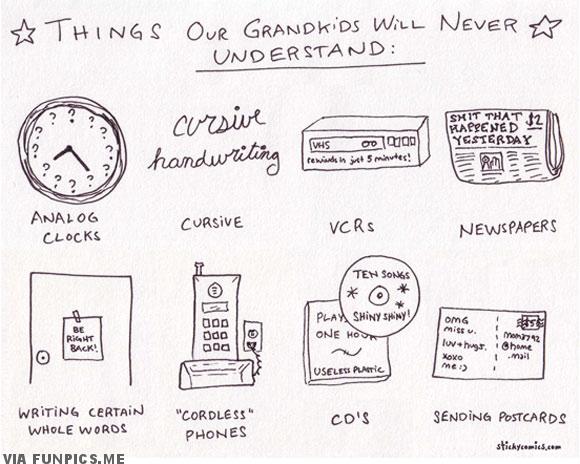 THINGS OUR GRANDKIDS WILL NEVER
UNDERSTAND:
? ? ? ? ? ? ? ? ? ? ? ?
ANALOG
CLOCKS
cursive
handwriting
CURSIVE
VHS
rewinds in just 5 minutes!
VCRs
SHIT THAT $2
HAPPENED
YESTERDAY
NEWSPAPERS
BE
RIGHT
BACK!
WRITING CERTAIN
WHOLE WORDS
"CORDLESS"
PHONES
TEN SONGS
SHINY SHINY!
PLAYS
ONE HOUR
USELESS PLASTIC
CD'S
OMG
miss u.
luv + hugs.
xoxo
me :)
mom3792
@home
.mail
SENDING POSTCARDS
stickycomics.com
VIA FUNPICS.ME